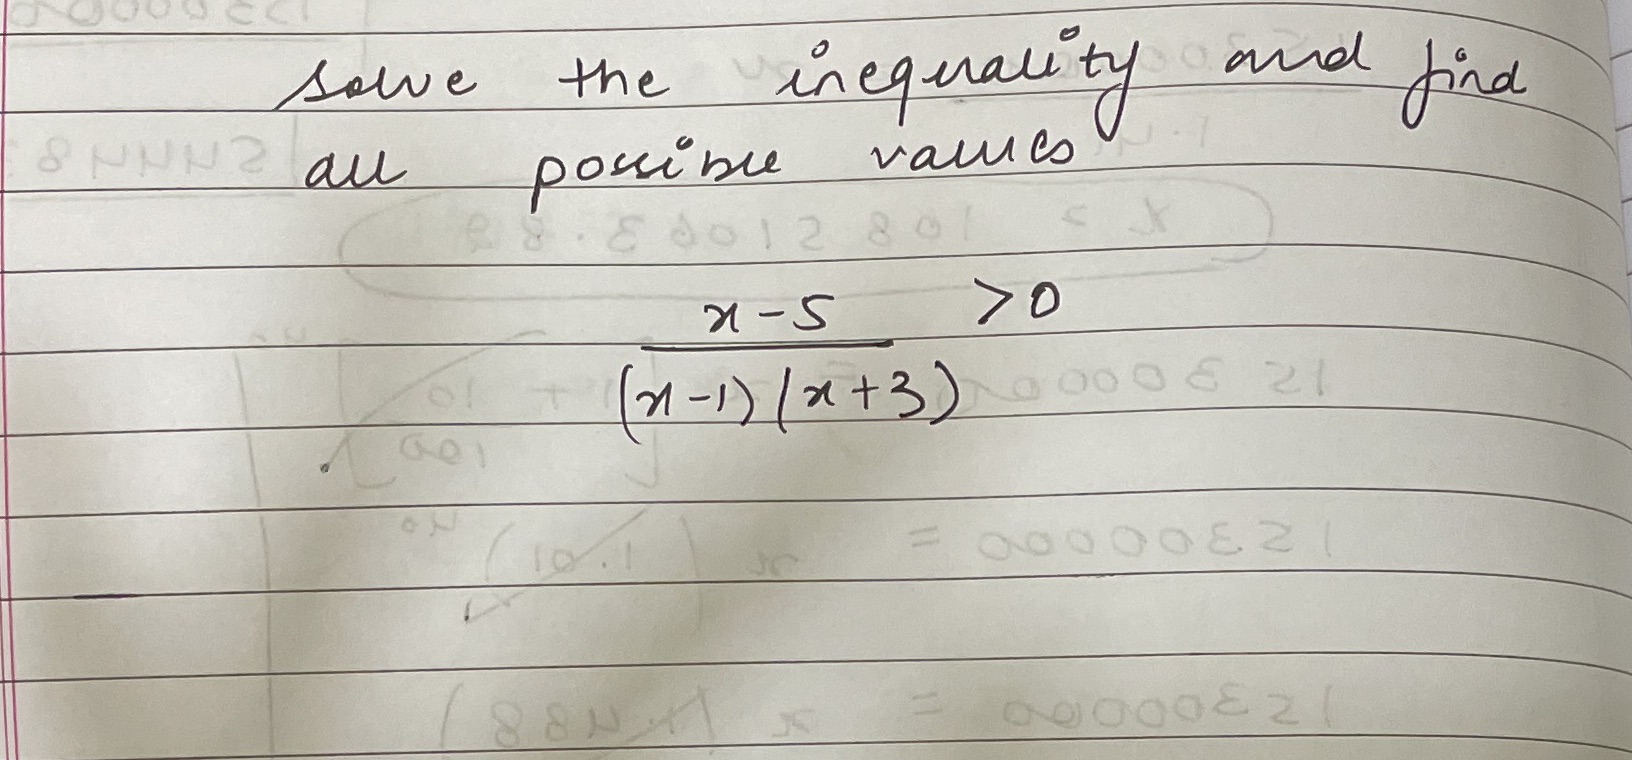 solve the inequality and find
all possible values
x-5 >0
(x-1)(x+3)